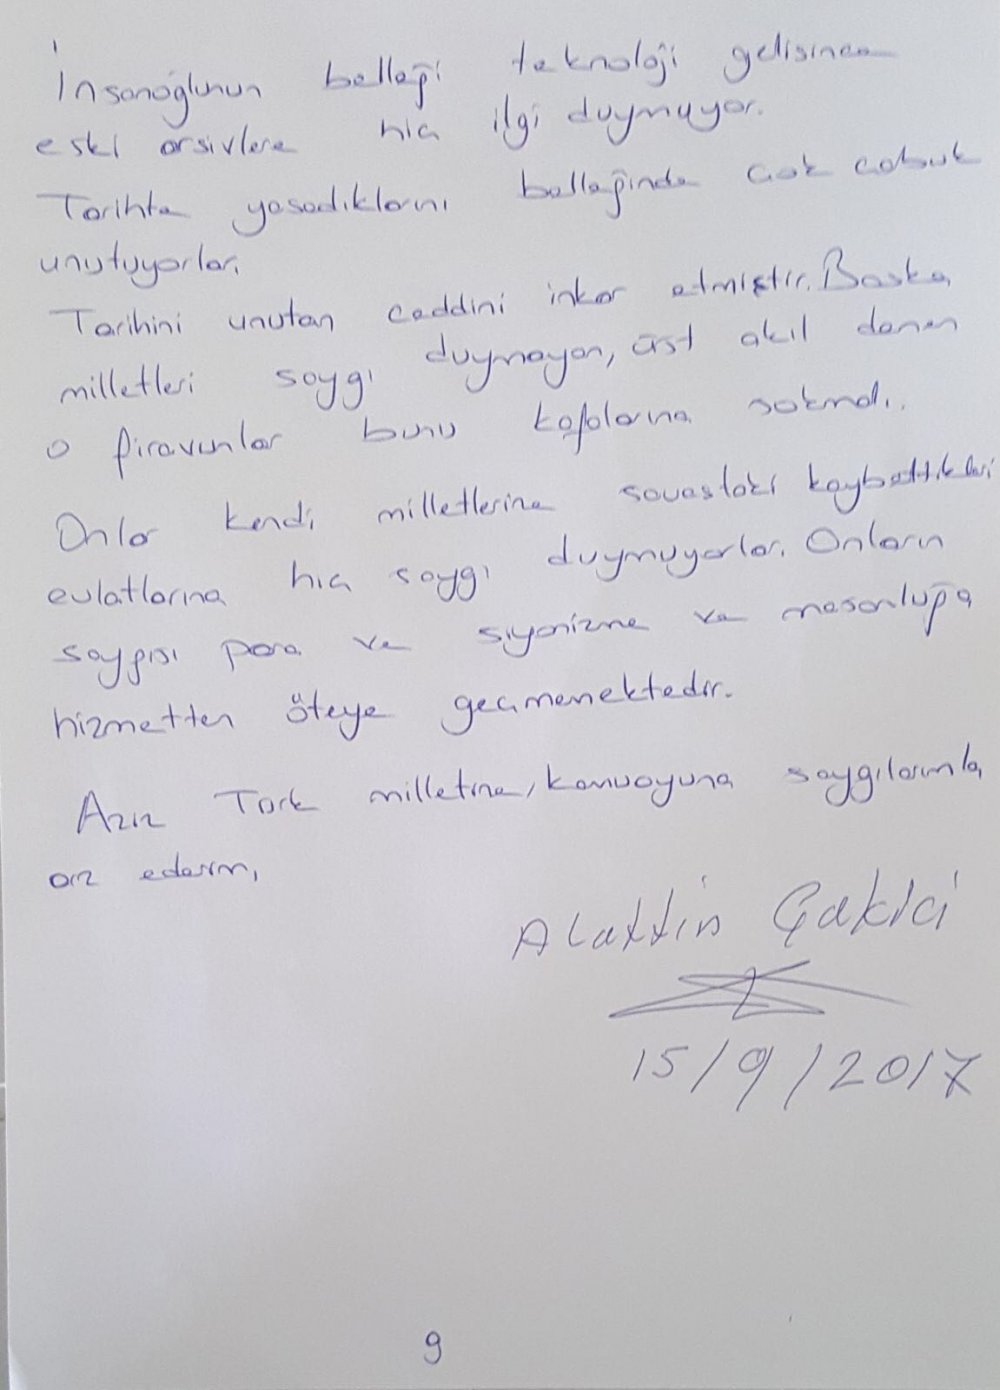 İnsanoğlunun belleği teknoloji gelisince
eski arsivlere hic ilgi duymuyor.
Tarihte yasadıklarını belleğinde cok cabuk
unutuyorlar.
Tarihini unutan ceddini inkar etmiştir. Baska
milletleri saygı duymayan, üst akıl denen
o firavunlar bunu kafalarına sokmalı.
Onlar kendi milletlerine savastaki kaybettikleri
evlatlarına hic saygı duymuyorlar. Onların
saygısı para ve siyonizme ve masonluğa
hizmetten öteye gecmemektedir.
Aziz Türk milletine, kamuoyuna saygılarımla
arz ederim.
Alattin Çakıcı
15/9/2017
9